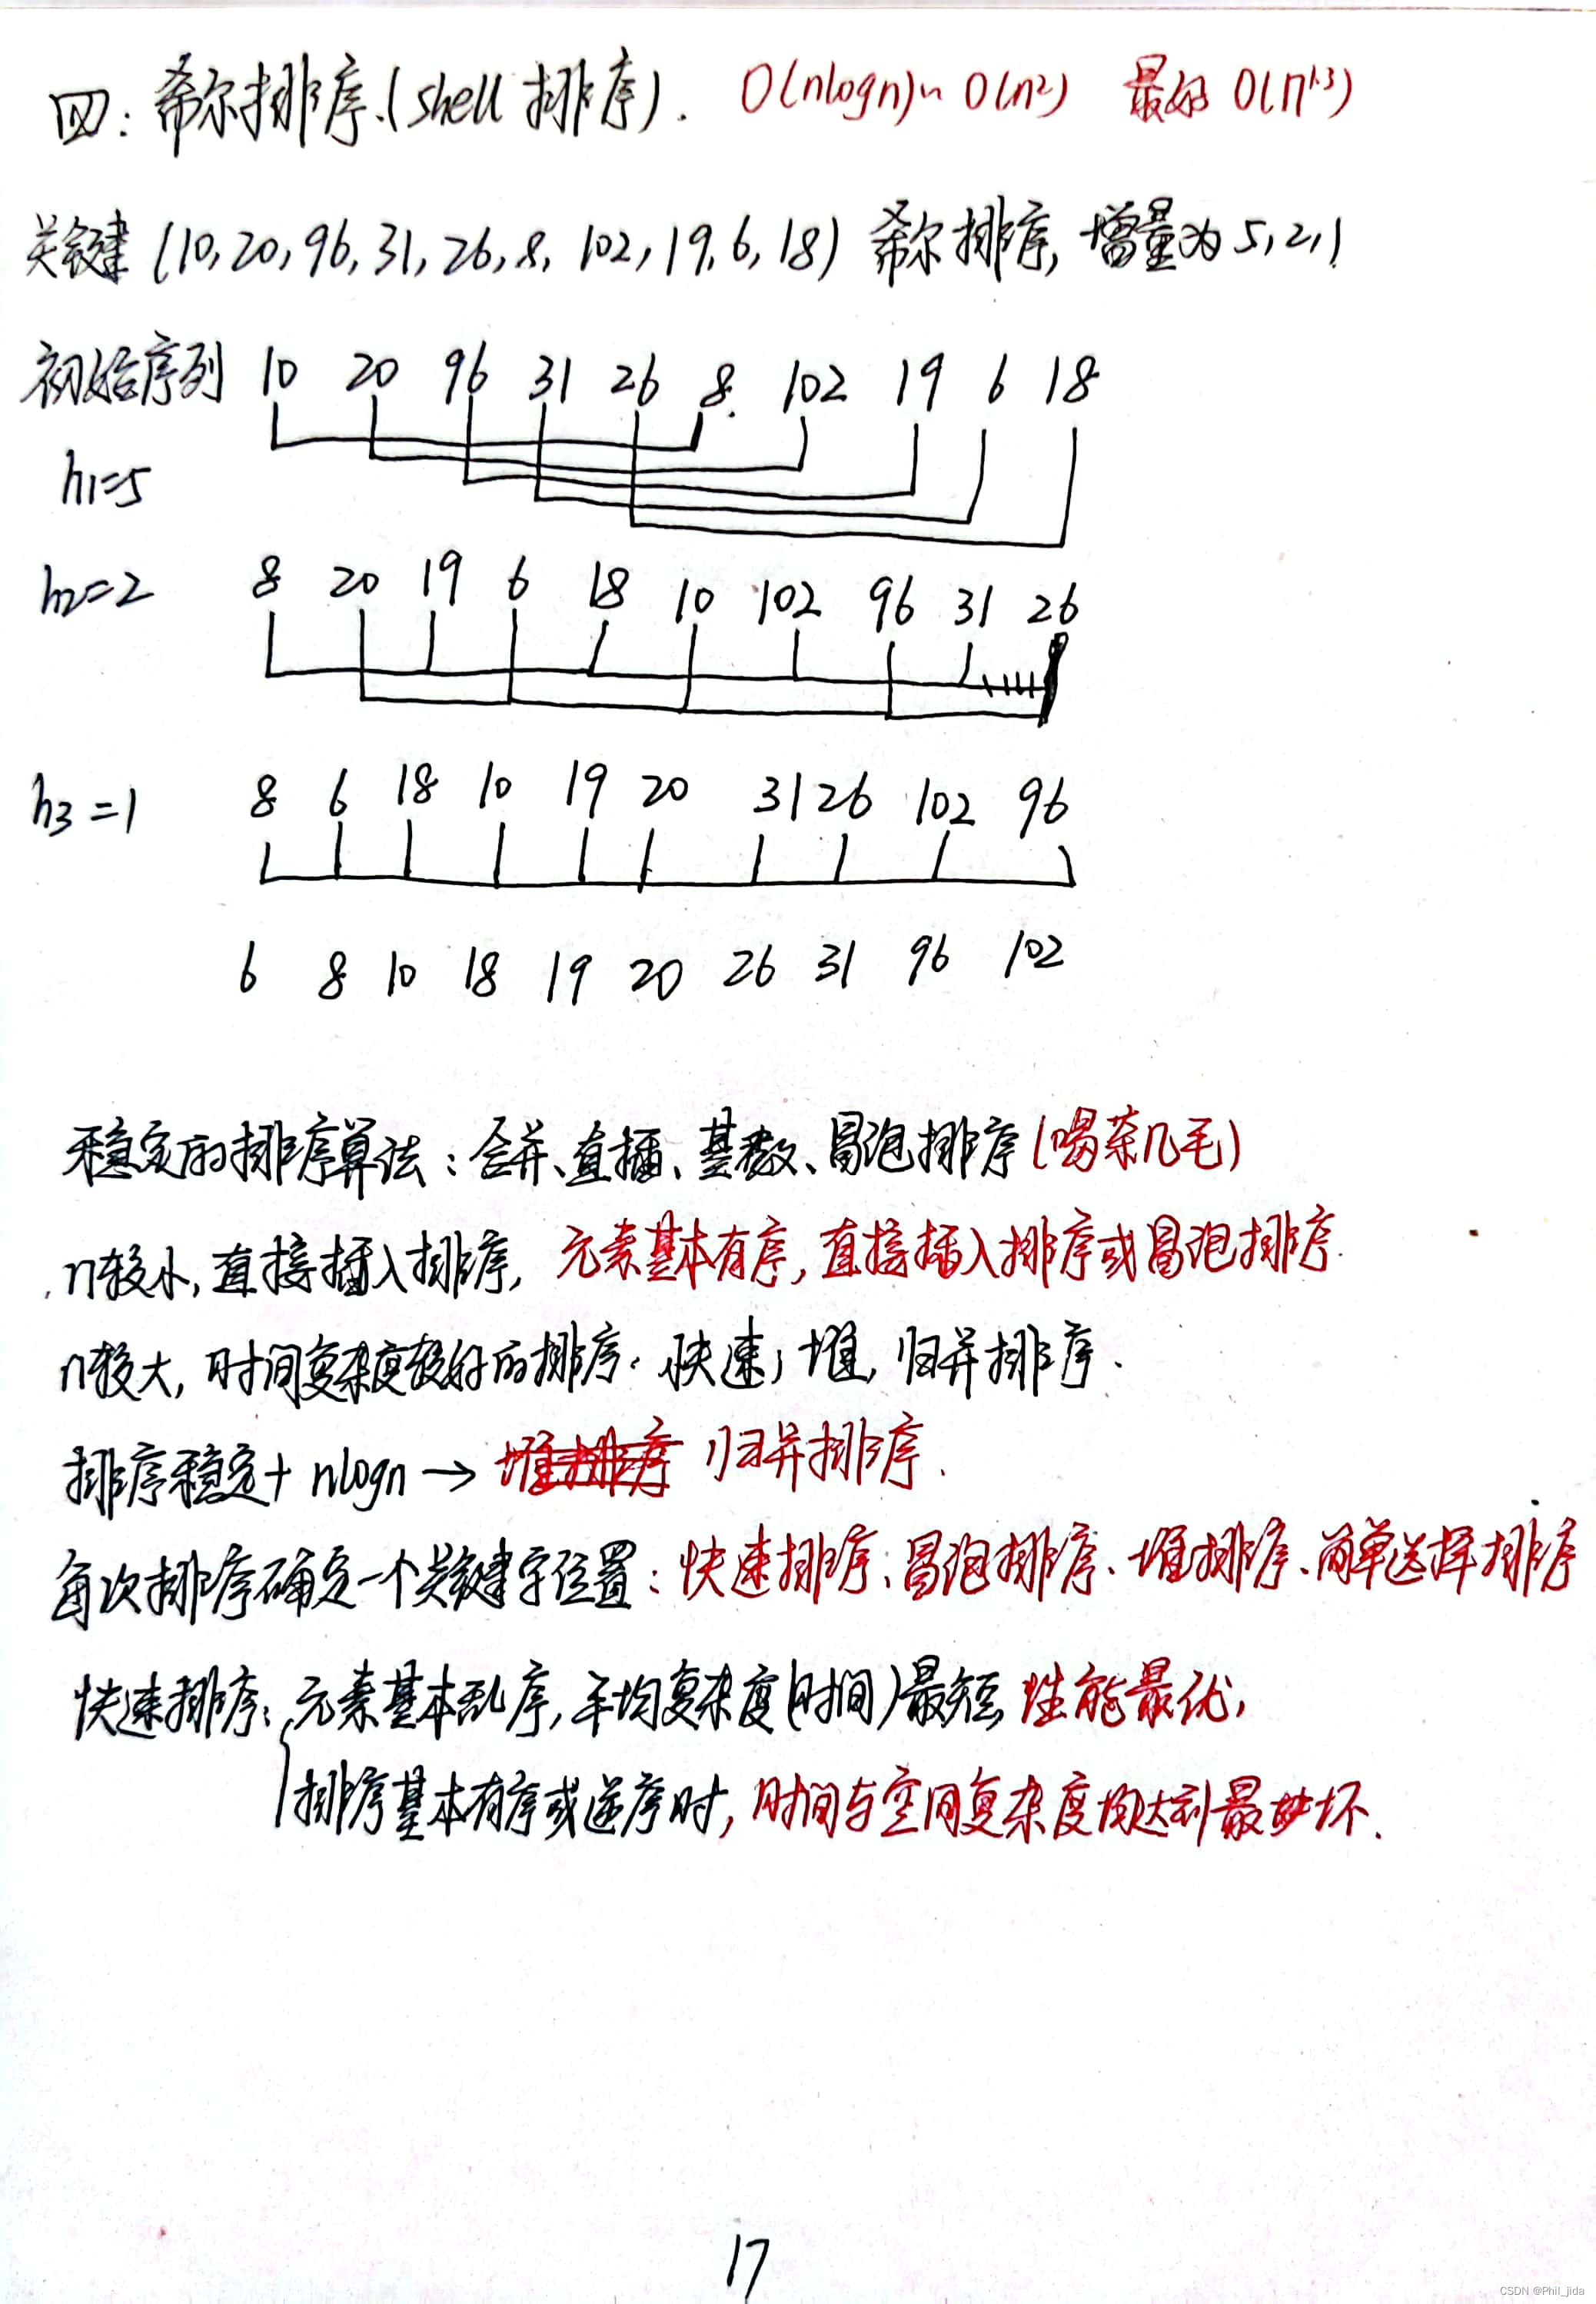 四：希尔排序.(shell 排序). O(nlogn)~O(n²) 最好 O(n^1.3)
关键 (10,20,96,31,26,8,102,19,6,18) 希尔排序,增量为 5,2,1
初始序列 10 20 96 31 26 8. 102 19 6 18
h1=5
h2=2 8 20 19 6 18 10 102 96 31 26
h3=1 8 6 18 10 19 20 31 26 102 96
6 8 10 18 19 20 26 31 96 102
稳定的排序算法：合并、直插、基数、冒泡排序(喝茶几毛)
n较小,直接插入排序, 元素基本有序,直接插入排序或冒泡排序.
n较大,时间复杂度较好的排序.快速,堆,归并排序.
排序稳定+nlogn→ 堆排序 归并排序.
每次排序确定一个关键字位置：快速排序、冒泡排序、堆排序、简单选择排序
快速排序：元素基本乱序,平均复杂度(时间)最短,性能最优,
排序基本有序或逆序时,时间与空间复杂度均达到最坏.
17
CSDN @Phil_jida